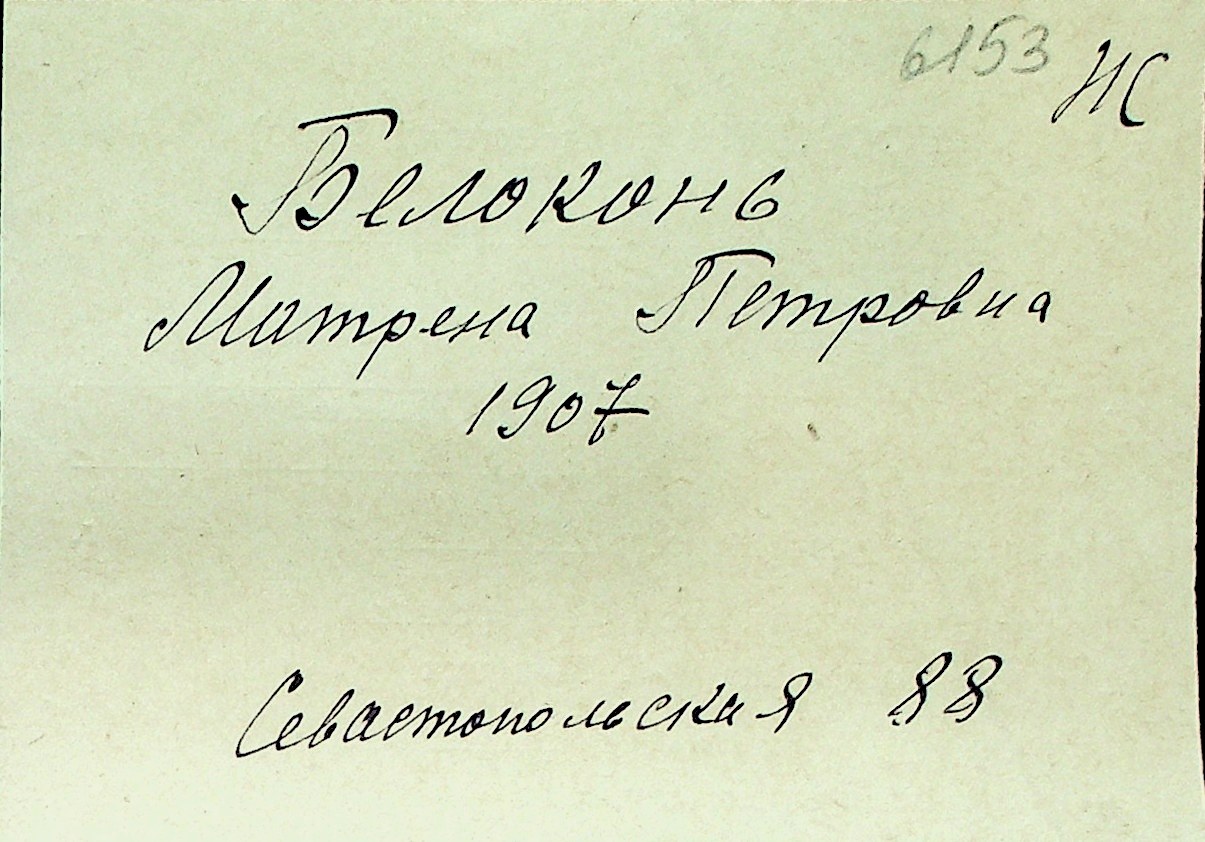 6153 НС
Белоконь
Матрена Петровна
1907
Севастопольская 88